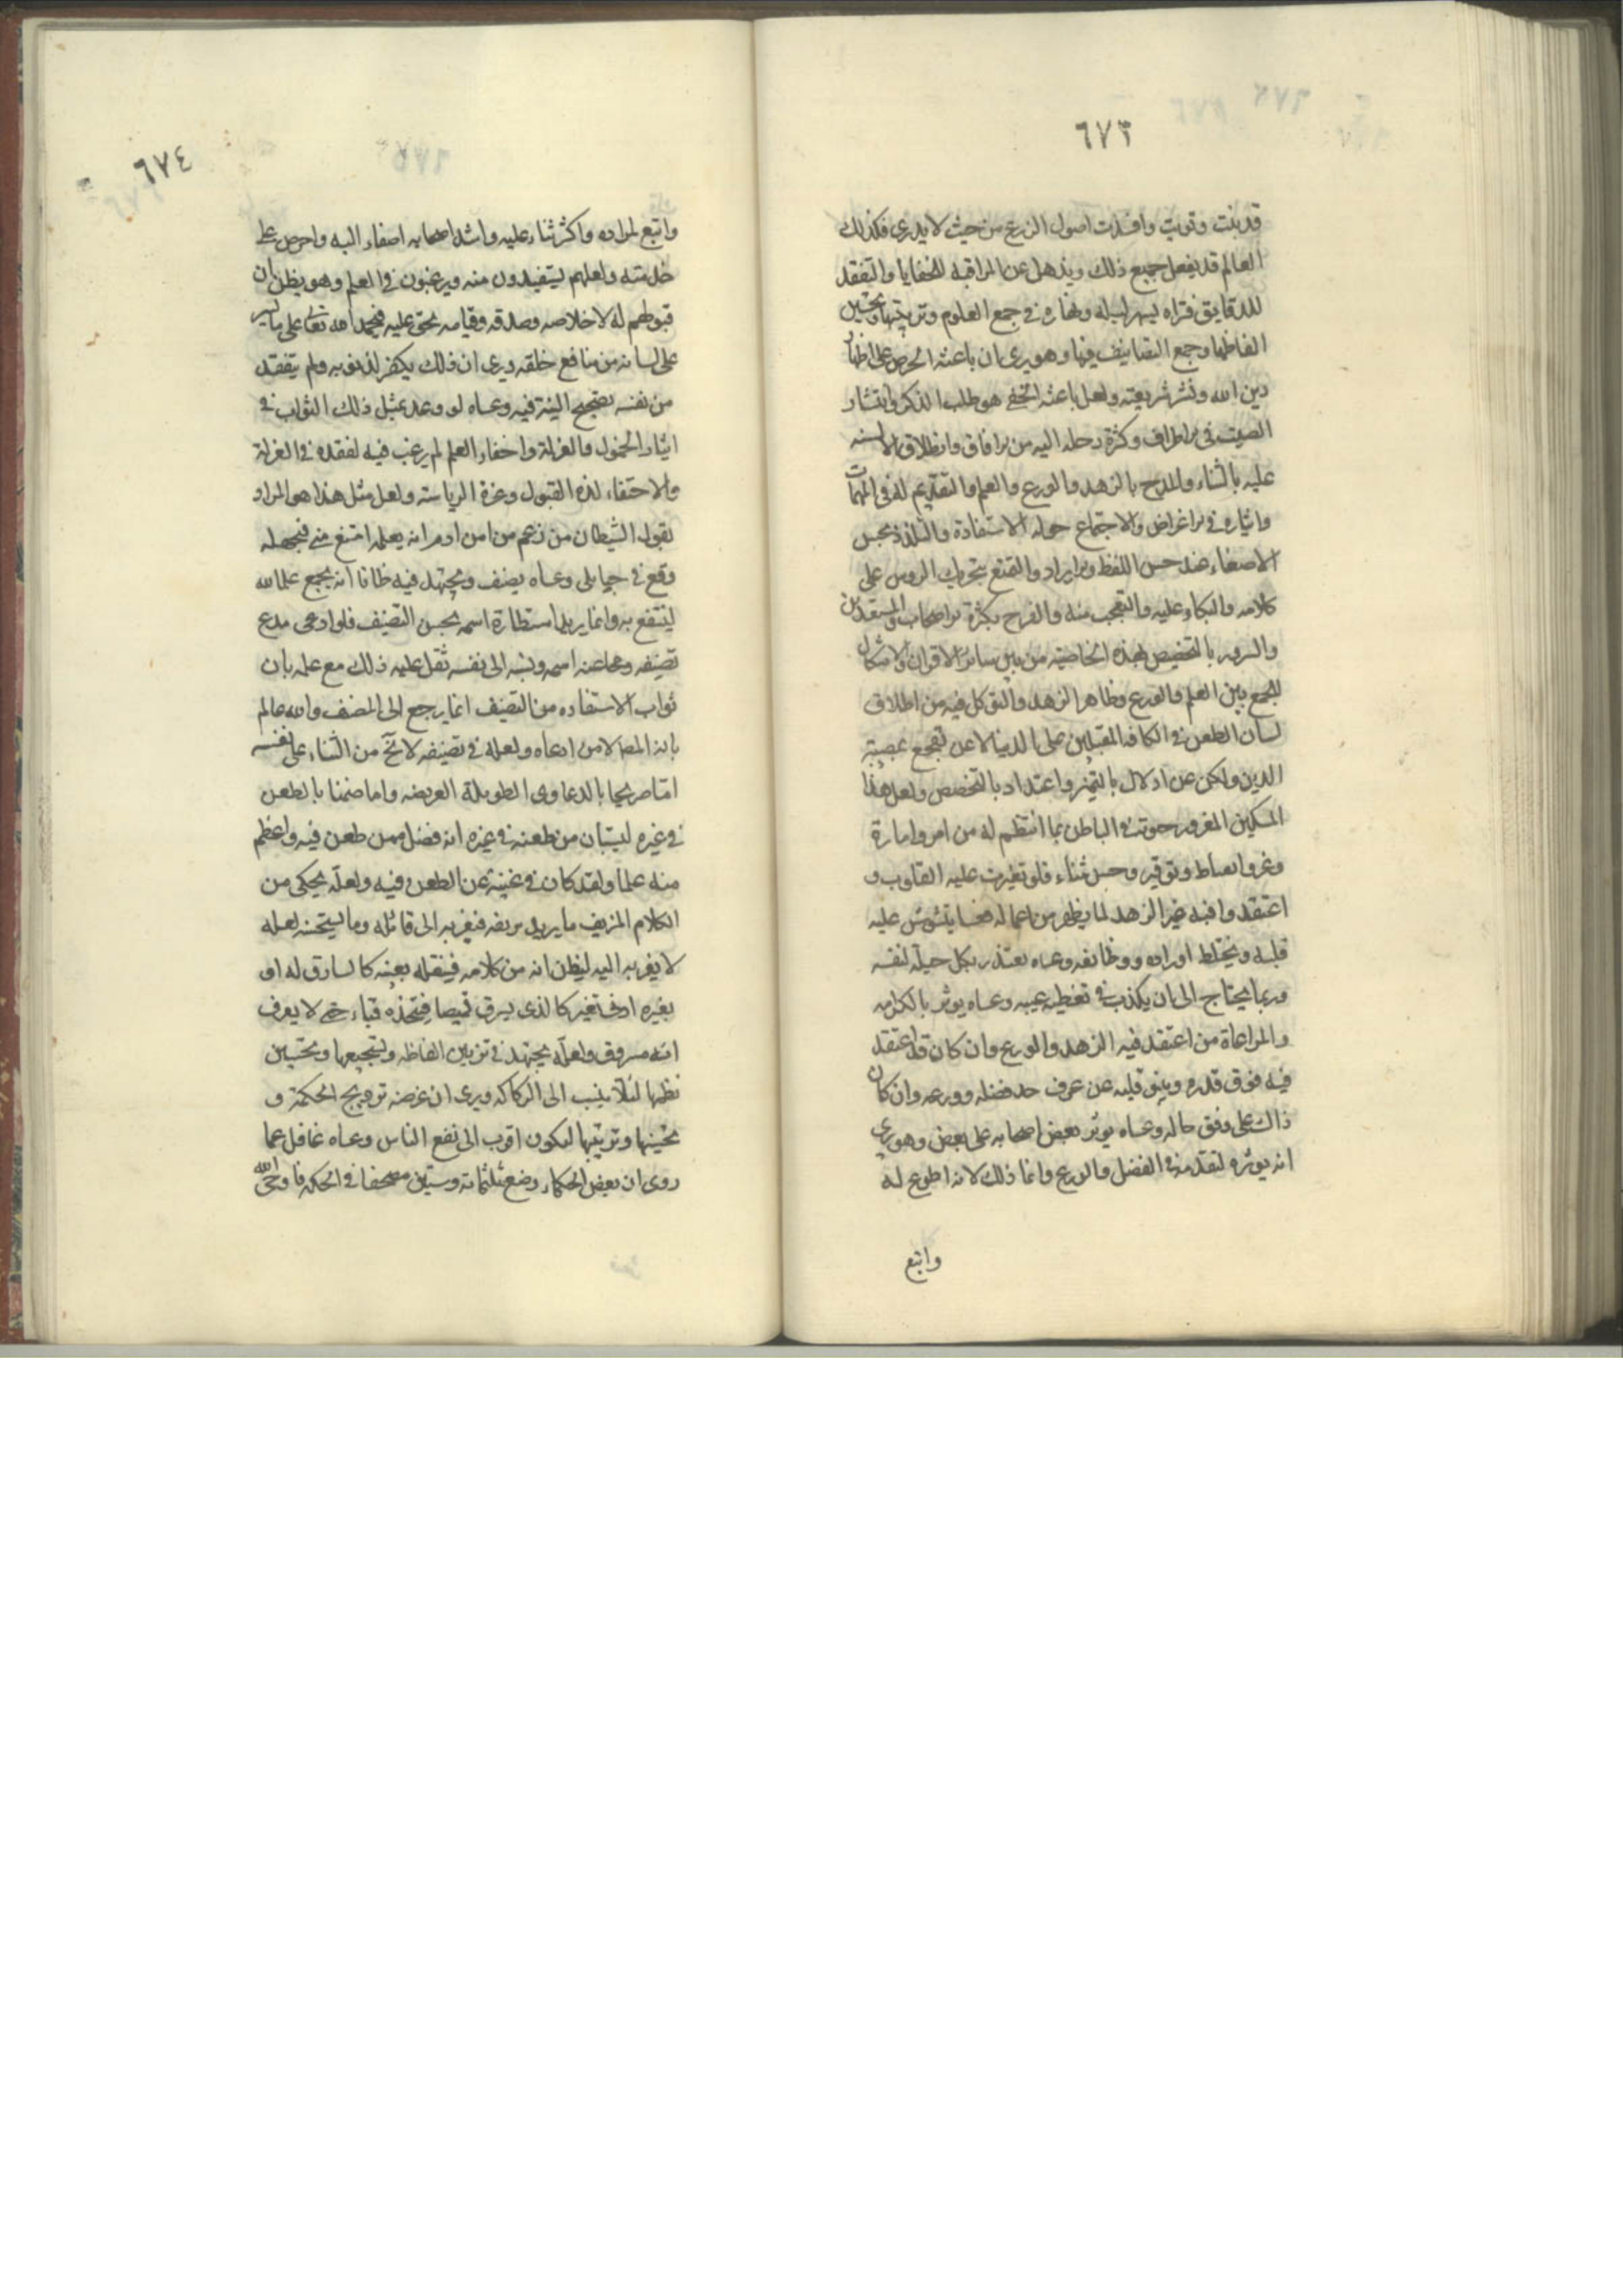 ٦٧٣
قد نبتت وقويت وافسدت اصول الزرع من حيث لا يدرى فكذلك
العالم قد يفعل جميع ذلك ويذهل عن المراقبة للخفايا والتفقد
للدقايق فتراه يسهر ليله ونهاره فى جمع العلوم وترتيبها وتحسين
الفاظها وجمع التصانيف فيها وهو يرى ان باعثه الحرص على اظهار
دين الله ونشر شريعته ولعل باعثه الخفى هو طلب الذكر وانتشار
الصيت فى الاطراف وكثرة رحلة اليه من الافاق وانطلاق الالسنه
عليه بالثناء والمدح بالزهد والورع والعلم والتقديم له فى المهمات
وايثاره فى الاغراض والاجتماع حوله الاستفادة والتلذذ بحسن
الاصغاء عند حسن اللفظ والايراد والتمتع بتحريك الروس على
كلامه والبكاء عليه والتعجب منه والفرح بكثرة الاصحاب والمستفدين
والسرور بالتخصيص بهذه الخاصية من بين سائر الاقران والاشكال
للجمع بين العلم والورع وظاهر الزهد والتوكل فيه من اطلاق
لسان الطعن فى الكافه المقبلين على الدنيا لا عن تفجع بمصيبة
الدين ولكن عن ادلال بالتميز واعتداد بالتخصص ولعل هذا
المسكين المغرور حيوته فى الباطن بما انتظم له من امر وامارة
وعز وانبساط وتوقير وحسن ثناء فلو تغيرت عليه القلوب و
اعتقدوا فيه غير الزهد لما يظهر من اعماله فعسا يتشوش عليه
قلبه ويختلط اوراده ووظائفه وعساه يعتذر بكل حيلة لنفسه
وربما يحتاج الى ان يكذب فى تغطية عيبه وعساه يوثر بالكرامه
والمراعاة من اعتقد فيه الزهد والورع وان كان قد اعتقد
فيه فوق قدره وينبو قلبه عن عرف حد فضله وورعه وان كان
ذلك على وفق حاله وعساه يوثر بعض اصحابه على بعض وهو يرى
انه يوثره لتقدمه فى الفضل والورع وانما ذلك لانه اطوع له
واتبع
٦٧٤
واتبع لمراده واكثر ثناء عليه واشد اصحابه اصغاء اليه واحرص على
خدمته ولعلهم يستفيدون منه ويرغبون فى العلم وهو يظن ان
قبولهم له لاخلاصه وصدقه وقيامه بحق عليه فيحمد الله تعالى على ما يسر
على لسانه من منافع خلقه ويرى ان ذلك يكفر لذنوبه ولم يتفقد
من نفسه تصحيح النية فيه وعساه لو وعد بمثل ذلك الثواب فى
ايثار الخمول والعزلة واخفاء العلم لم يرغب فيه لفقده فى العزلة
والاختفاء لذة القبول وعزة الرياسته ولعل مثل هذا هو المراد
بقول الشيطان من زعم من امن ادم انه يعلمه امتنع منى فبجهله
وقع فى حبايلى وعساه يصنف ويجتهد فيه ظانا انه يجمع علم الله
لينتفع به وانما يريد استطارة اسمه بحسن التصنيف فلو ادعى مدع
تصنيفه ومحا عنه اسمه ونسبه الى نفسه ثقل عليه ذلك مع علمه بان
ثواب الاستفاده من التصنيف انما يرجع الى المصنف والله عالم
بانه المصنف لا من ادعاه ولعله فى تصنيفه لا يخ من الثناء على نفسه
اما صريحا بالدعاوى الطويلة العريضه واما ضمنا بالطعن
فى غيره ليستبان من طعنه فى غيره انه فضل ممن طعن فيه واعظم
منه علما ولقد كان فى غنيته عن الطعن فيه ولعله يحكى من
الكلام المزيف ما يريد تزيفه فيغريه الى قائله وما يستحسنه لعله
لا يغريه اليه ليظن انه من كلامه فينقله بعينه كالسارق له او
يغيره ادنى تغير كالذى يسرق قميصا فيتخذه قباء حتى لا يعرف
انه مسروق ولعله يجتهد فى تزيين الفاظه وتسجيعها وتحسين
نظمها لئلا ينسب الى الركاكه ويرى ان غرضه ترويج الحكمة و
تحسينها وتزيينها لتكون اقرب الى نفع الناس وعساه غافل عما
روى ان بعض الحكماء وضع ثلثمائة وستين مصحفا فى الحكمه فاوحى الله